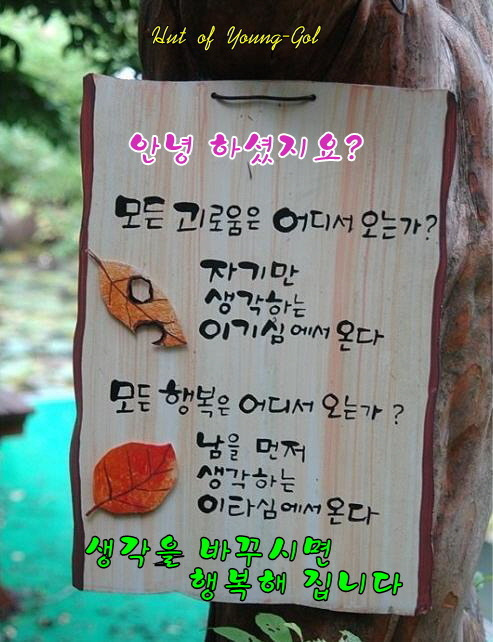 Hut of Young-Gol
안녕 하셨지요?
모든 괴로움은 어디서 오는가?
자기만
생각하는
이기심에서 온다
모든 행복은 어디서 오는가?
남을 먼저
생각하는
이타심에서 온다
생각을 바꾸시면
행복해 집니다